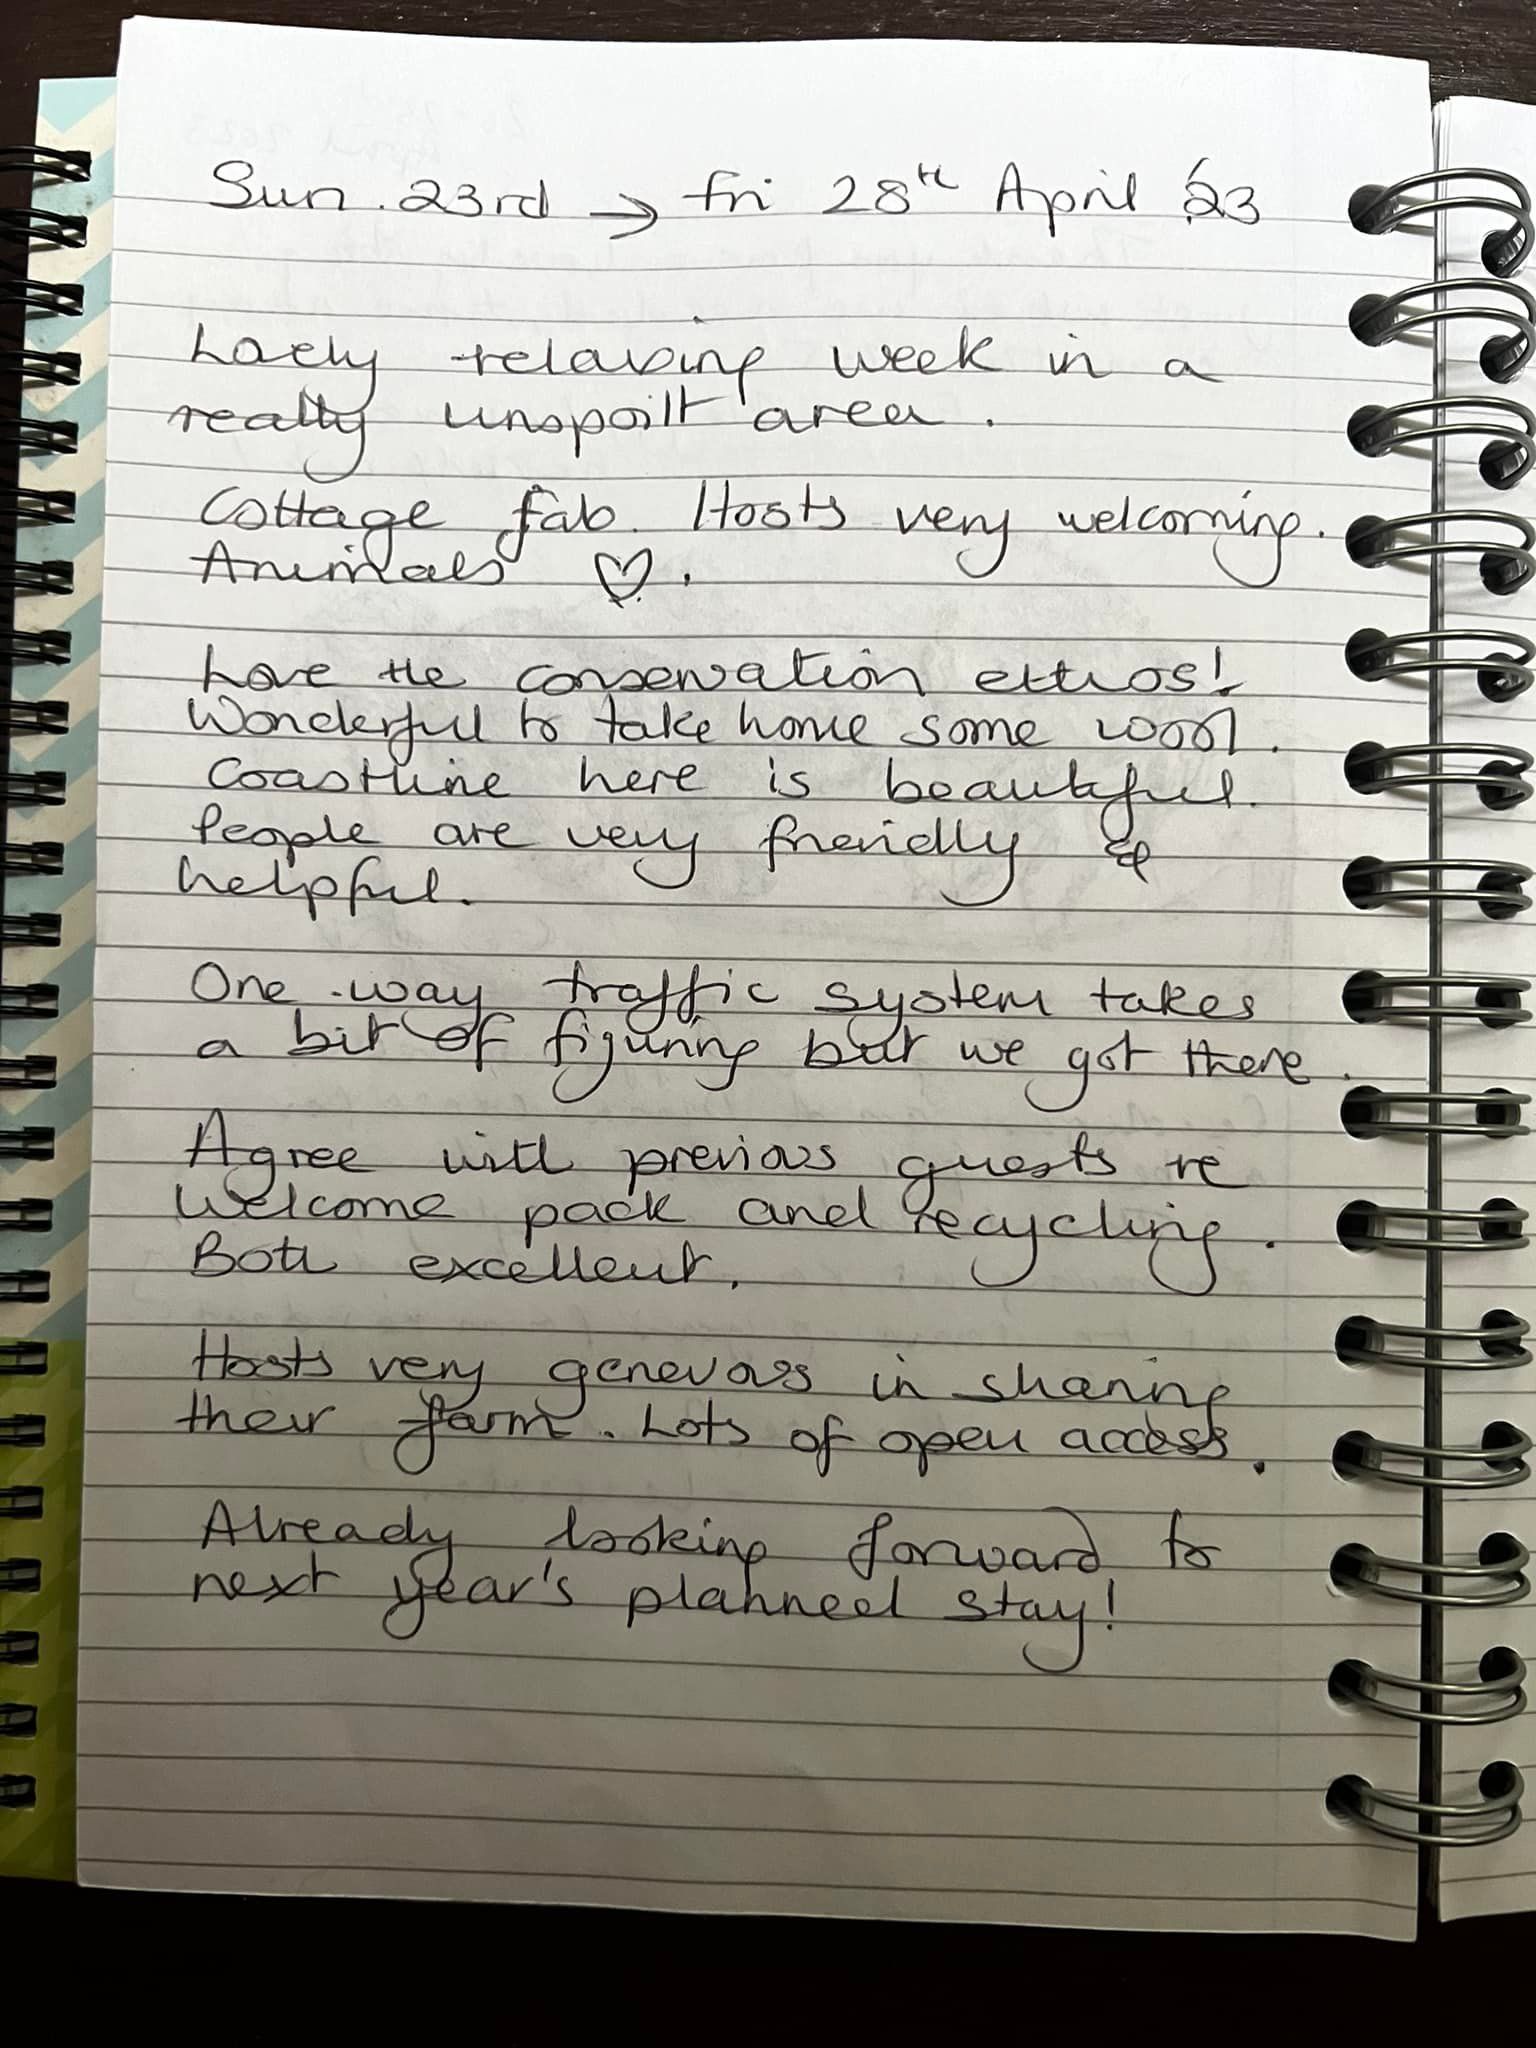 Sun. 23rd → Fri 28th April '23
Lovely relaxing week in a
really unspoilt area.
Cottage fab. Hosts very welcoming.
Animals ♡.
Love the conservation ethos!
Wonderful to take home some wool.
Coastline here is beautiful.
People are very friendly &
helpful.
One-way traffic system takes
a bit of figuring but we got there.
Agree with previous guests re
welcome pack and recycling.
Both excellent.
Hosts very generous in sharing
their farm. Lots of open access.
Already looking forward to
next year's planned stay!